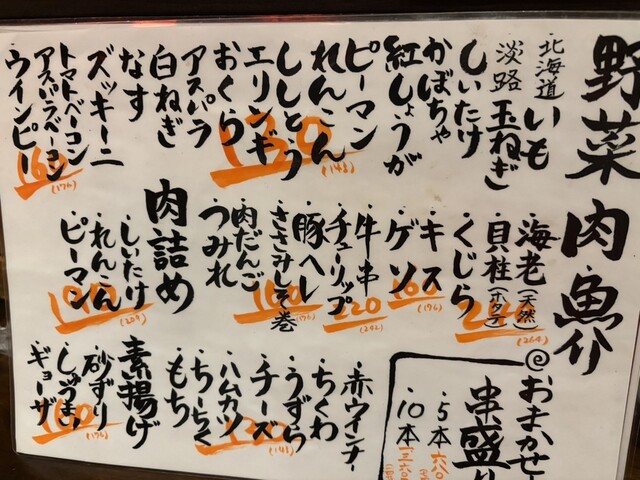 野菜
北海道いも
淡路玉ねぎ
・しいたけ
・かぼちゃ
・紅しょうが
・ピーマン
・れんこん
・ししとう
・エリンギ
・おくら
・アスパラ
・白ねぎ
・なす
・ズッキーニ
・トマトベーコン
・アスパラベーコン
・ウインピー
130
(143)
160
(176)
肉魚介
・海老(天然)
・貝柱(ホタテ)
・くじら
240
(264)
・キス
・ゲソ
160
(176)
・牛串
・チューリップ
220
(242)
・豚ヘレ
・ささみしそ巻
・肉だんご
・うみれ
160
(176)
肉詰め
・しいたけ
・れんこん
・ピーマン
190
(209)
・赤ウインナー
・ちくわ
・うずら
・チーズ
・ハムカツ
・ちーちく
・もち
(143)
素揚げ
・砂ずり
・しゅうまい
・ギョーザ
160
(176)
@おまかせ
串盛り
・5本
・10本